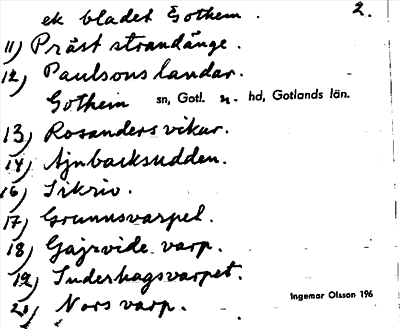 ek bladet Gothem. 2.
11) Präst strandänge.
12) Paulsons landar.
Gothem sn, Gotl. n. hd, Gotlands län.
13) Rosanders vikar.
14) Ajnbacksudden.
16) Sikriv.
17) Grunnsvarpet.
18) Gajrvide varp.
19) Suderhagsvarpet.
20) Nors varp.
Ingemar Olsson 196